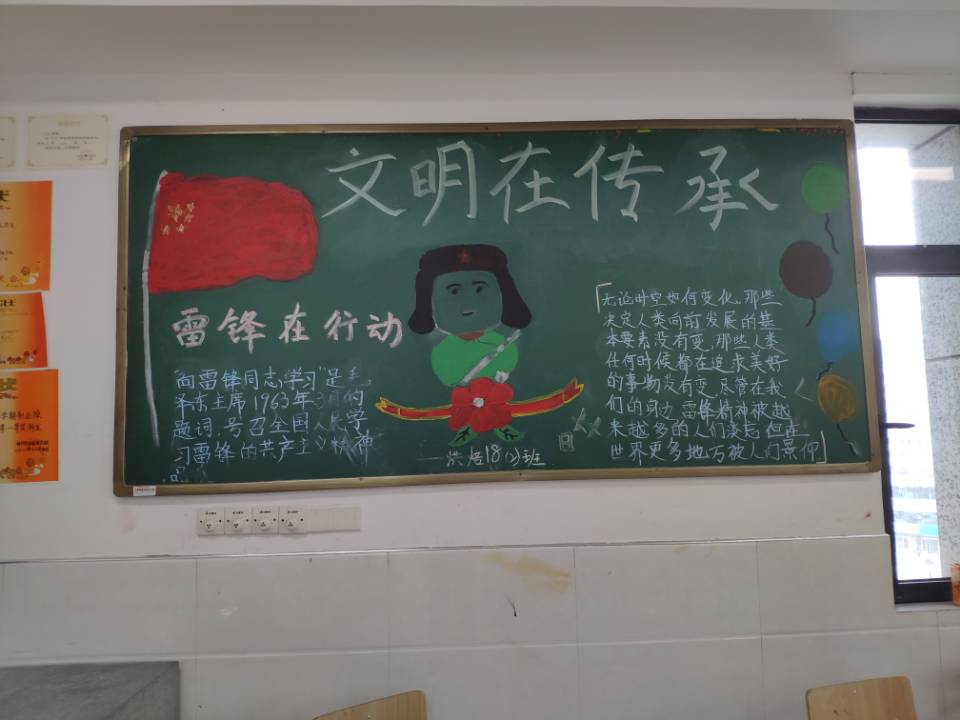 文明在传承
雷锋在行动
向雷锋同志学习"是毛
泽东主席1963年3月的
题词,号召全国人民学
习雷锋的共产主义精神
无论时空如何变化,那些
决定人类向前发展的基
本要素没有变,那些人类
任何时候都在追求美好
的事物没有变,尽管在我
们的身边,雷锋精神被越
来越多的人们淡忘但在
世界更多地方被人们景仰
洪焙18(2)班